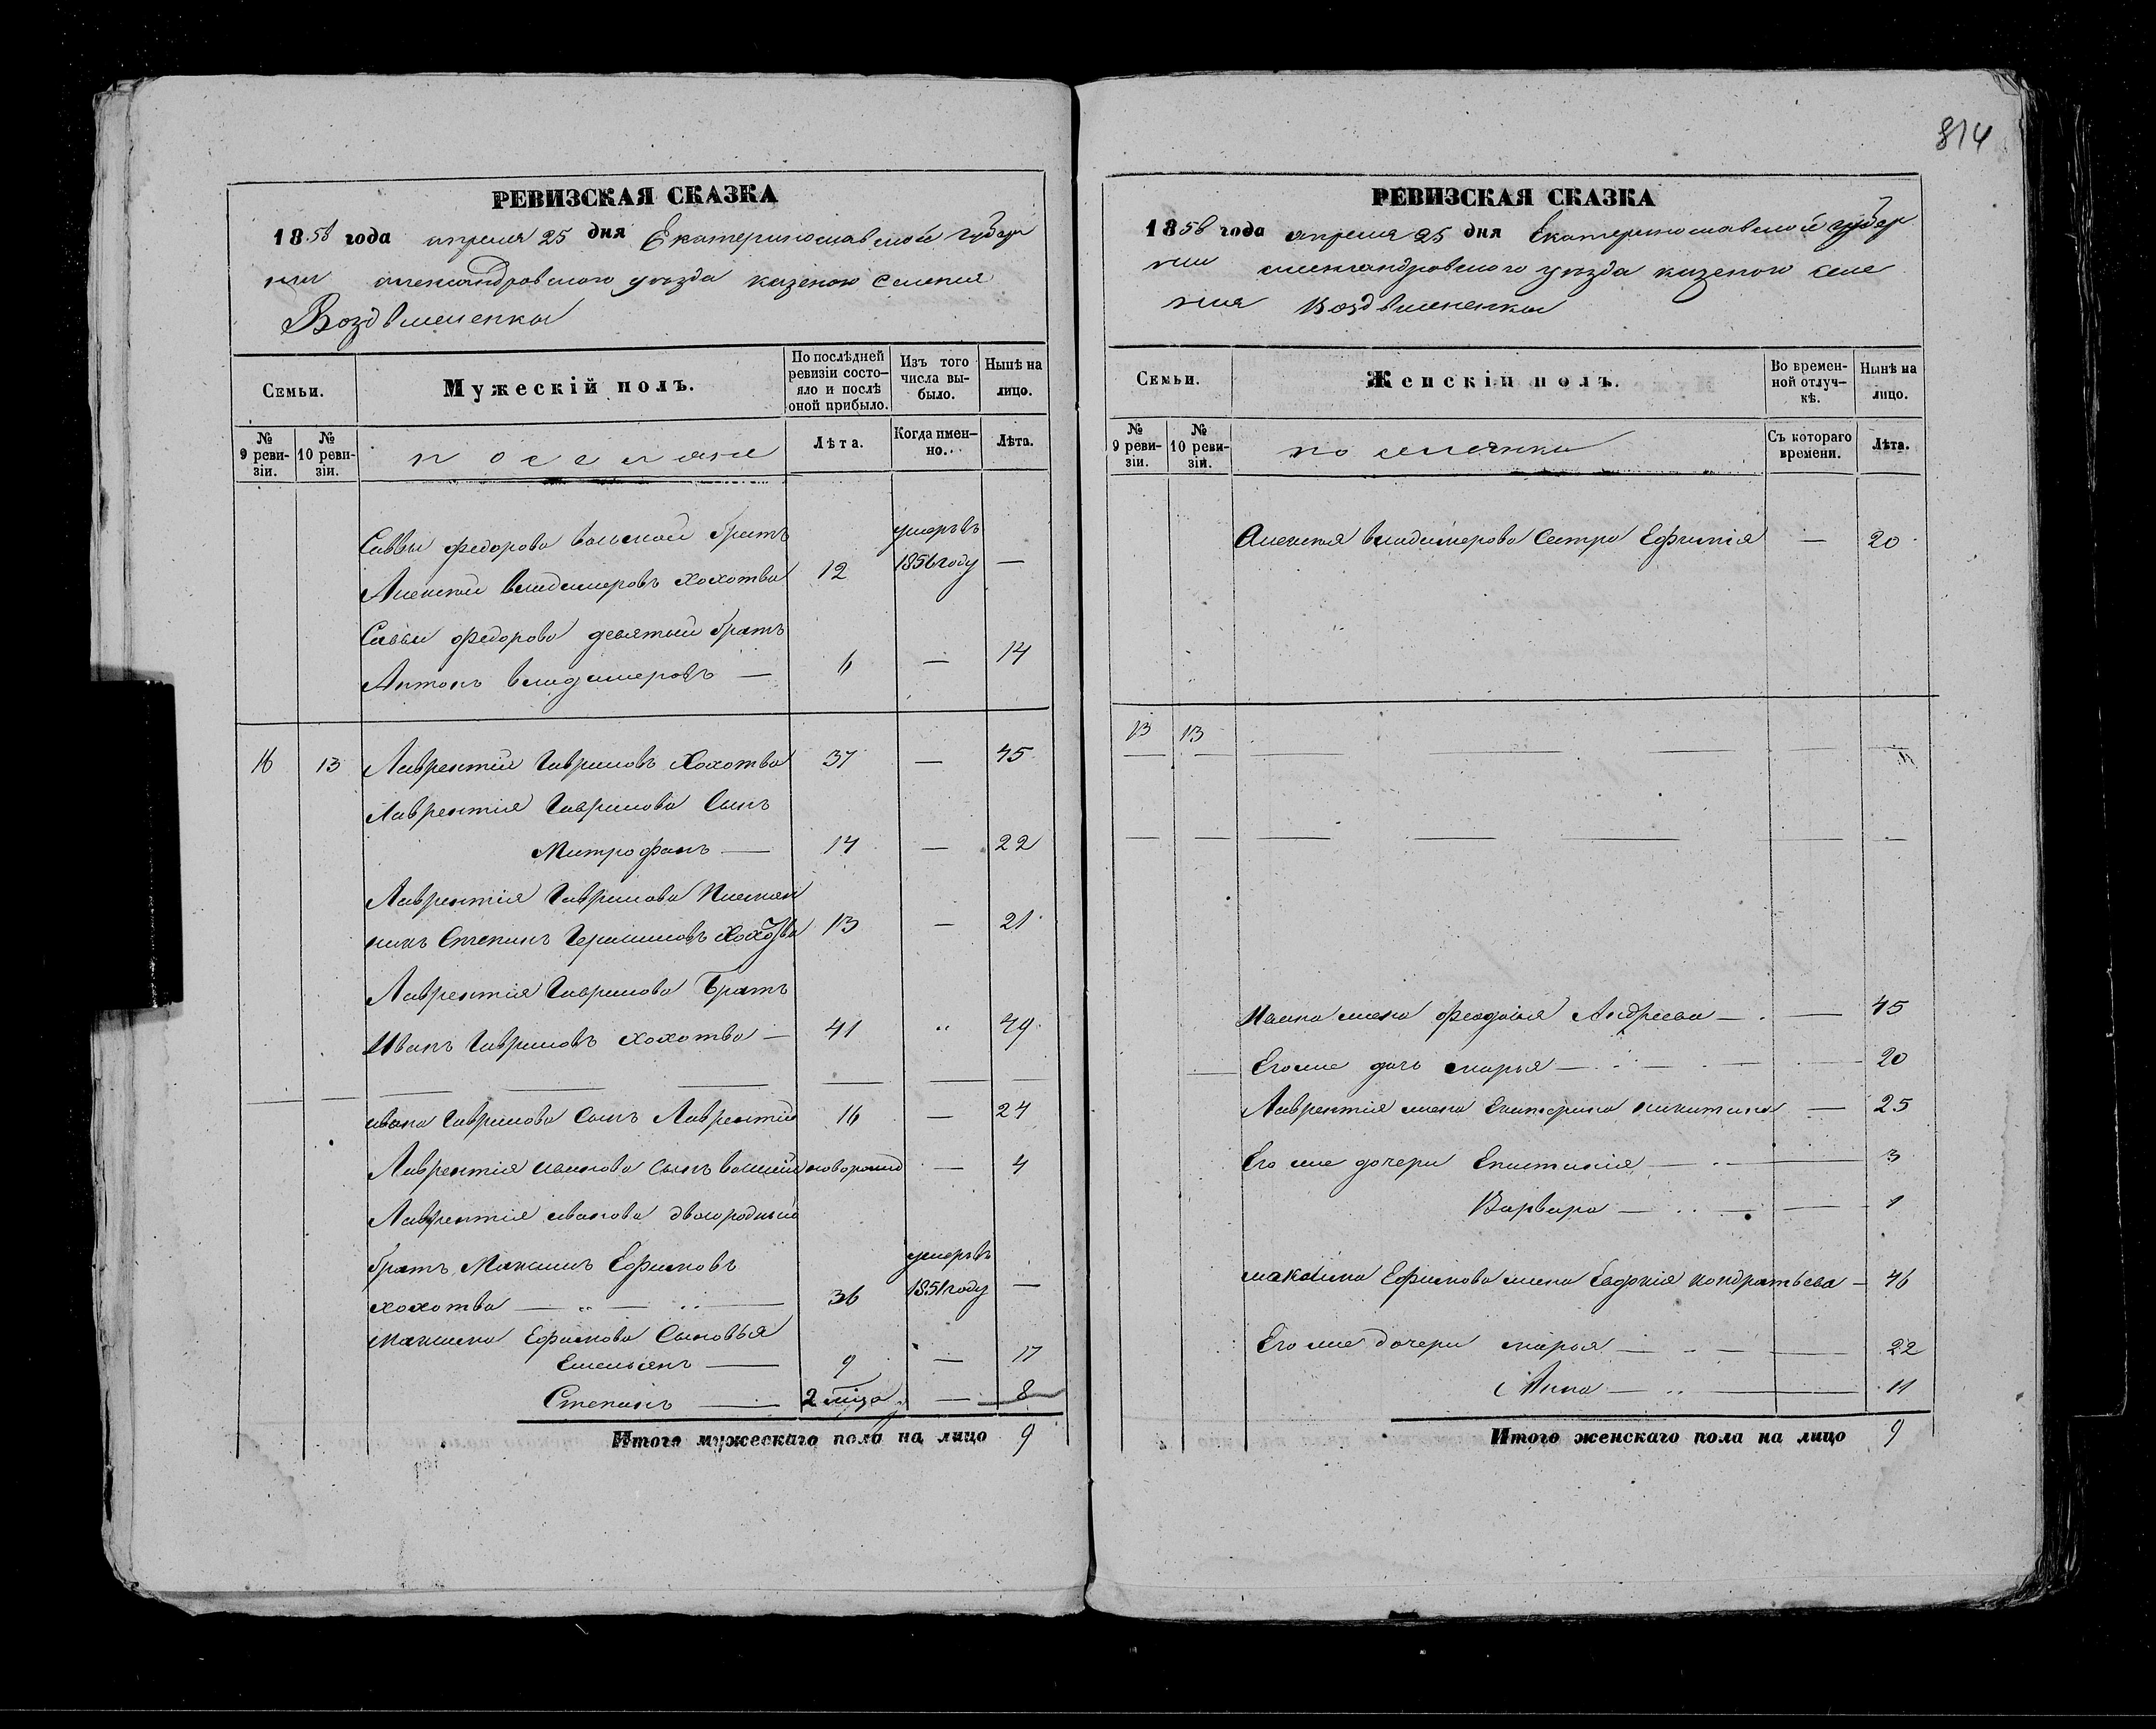 814
РЕВИЗСКАЯ СКАЗКА
1858 года апреля 25 дня Екатеринославской губер
нии александровского уезда казеного селения
Воздвиженки
Семьи.
Мужескій полъ.
По послѣдней ревизіи состо-
яло и послѣ оной прибыло.
Изъ того числа вы-
было.
Нынѣ на лицо.
№ 9 реви-
зіи.
№ 10 реви-
зіи.
поселяне
Лѣта.
Когда имен-
но.
Лѣта.
Саввы федорова братъ умеръ въ
Алексей владимеровъ хохотва 12 1856 году —
Саввы федорова девятый братъ
Антонъ владимеровъ — 6 — 14
16 13 Лаврентий Гавриловъ Хохотва 37 — 45
Лаврентия Гаврилова Сынъ
Митрофанъ — 14 — 22
Лаврентія Гаврилова Племян
никъ Степанъ Герасимовъ Хохотва 13 — 21
Лаврентия Гаврилова Братъ
Иванъ Гавриловъ хохотва — 41 " 49
ивана Гаврилова Сынъ Лаврентий 16 — 24
Лаврентия иванова сынъ новорожд — 4
Лаврентия иванова двоюродный
братъ Максимъ Ефимовъ умеръ въ
хохотва — 36 1851 году —
максима Ефимова Сыновья
Емельянъ — 9 — 17
Степанъ — 2 мѣса — 8
Итого мужескаго пола на лицо 9
РЕВИЗСКАЯ СКАЗКА
1858 года апреля 25 дня Екатеринославской губер
нии александровского уезда казеного селе
ния Воздвиженки
Семьи.
Женскій полъ.
Во времен-
ной отлуч-
кѣ.
Нынѣ на лицо.
№ 9 реви-
зіи.
№ 10 реви-
зіи.
поселянки
Съ котораго времени.
Лѣта.
Алексея владимерова Сестра Ефимія — 20
13 13
Ивана жена Феодосия Андреева — 45
Его же дочь марья — 20
Лаврентия жена Екатерина никитина — 25
Его же дочери Епистимія — 3
Варвара — 1
максима Ефимова жена Евдокия кондратьева — 46
Его же дочери марья — 22
Анна — 11
Итого женскаго пола на лицо 9